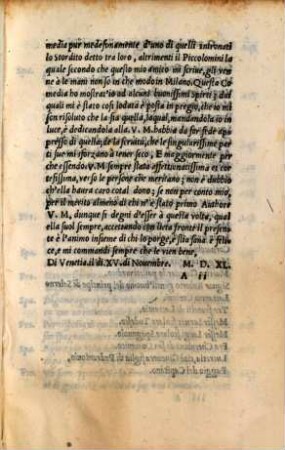 media pur medesimamente d'uno di quelli intronati
lo Stordito detto tra loro, altrimenti il Piccolomini la
quale secondo che questo mio amico mi scriue, gli ven
ne à le mani non so in che modo in Milano. Questa Co
media ho mostrat'io ad alcuni buonissimi spiriti; da i
quali mi è stato cosi lodata è posta in pregio, che io mi
son risoluto che la sia quella, laqual, mandandola io in
luce, è dedicandola alla. V. M. habbia da far fede ap
presso di quella, de la seruitù, che le singularissime par
ti sue mi sforzano à tener seco; E maggiormente per
che essendo. V. M sempre stata affettionatissima et cor
tesissima, verso le persone che meritano; non è dubbio
ch'ella haura caro cotal dono; se non per conto mio,
per il merito almeno di chi n'è stato primo Authore
V. M, dunque si degni d'esser à quella volta, qual
ella suol sempre, accettando con lieta fronte il presen
te è l'animo insieme di chi lo porge, è stia sana è felice
ce, è mi commandi sempre che le vien bene,
Di Venetia. il dì XV. di Nouembre. M. D. XL.
A ii